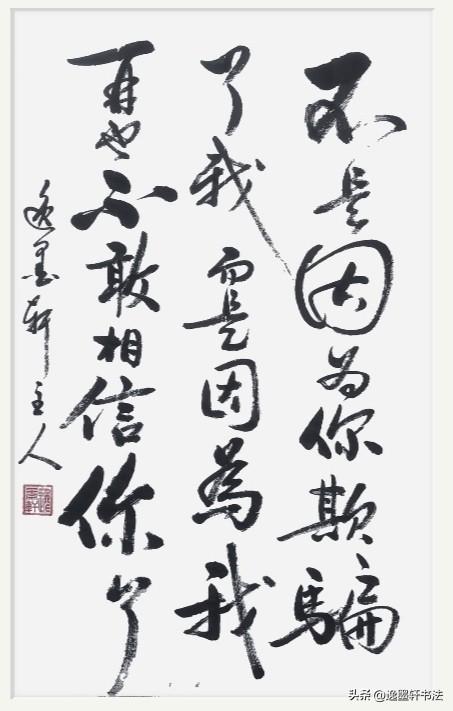 不是因为你欺騙
了我而是因為我
再也不敢相信你了
逸墨軒主人
头条 @逸墨轩书法